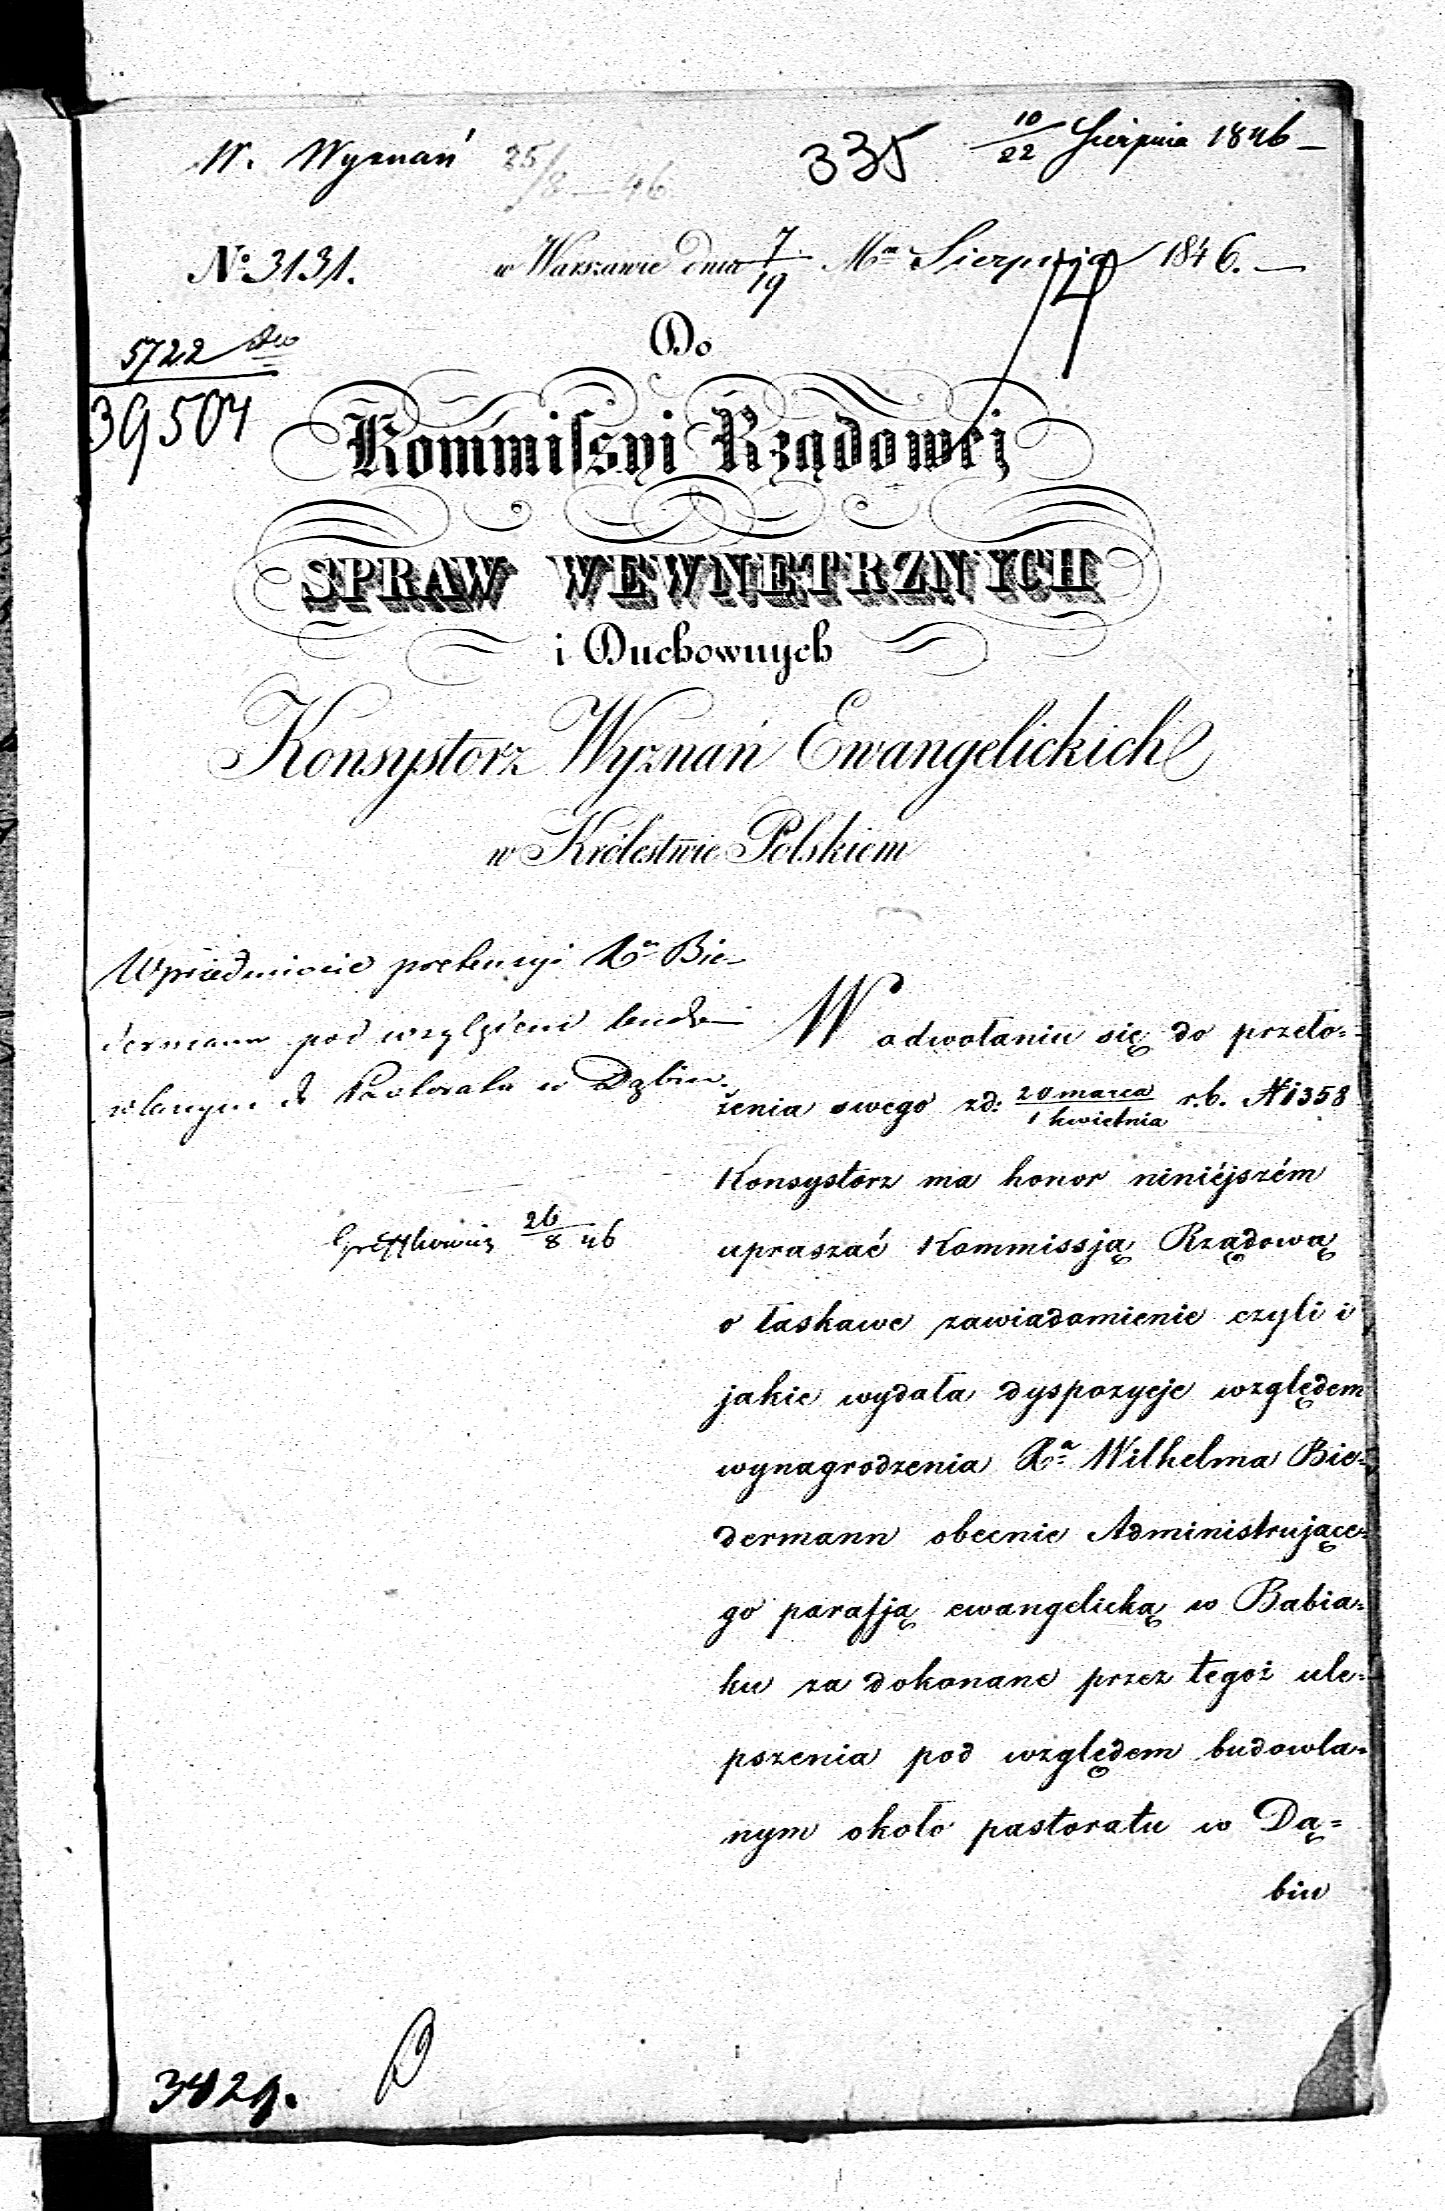 W. Wyznań 25/8 – 46 335 10/22 Sierpnia 1846 –
№ 3131. w Warszawie dnia 7/19 Mca Sierpnia 1846. –
5722
39504
Do
Kommiſsyi Rządowéj
SPRAW WEWNETRZNYCH
i Duchownych
Konsystorz Wyznań Ewangelickich
w Królestwie Polskiem
W przedmiocie pretensyi Xa Bie-
dermann pod względem budo-
wlanym Pastoratu w Dąbiu.
26/8 46
W odwołaniu się do przeło=
żenia swego zd: 20 marca / 1 kwietnia r.b. N 1358
Konsystorz ma honor niniéjszém
upraszać Kommissją Rządową
o łaskawe zawiadomienie czyli i
jakie wydała dyspozycje względem
wynagrodzenia Xa Wilhelma Bie=
dermann obecnie Administrujące=
go parafją ewangelicką w Babia=
ku za dokonane przez tegoż ule=
pszenia pod względem budowla=
nym około pastoratu w Dą=
biu